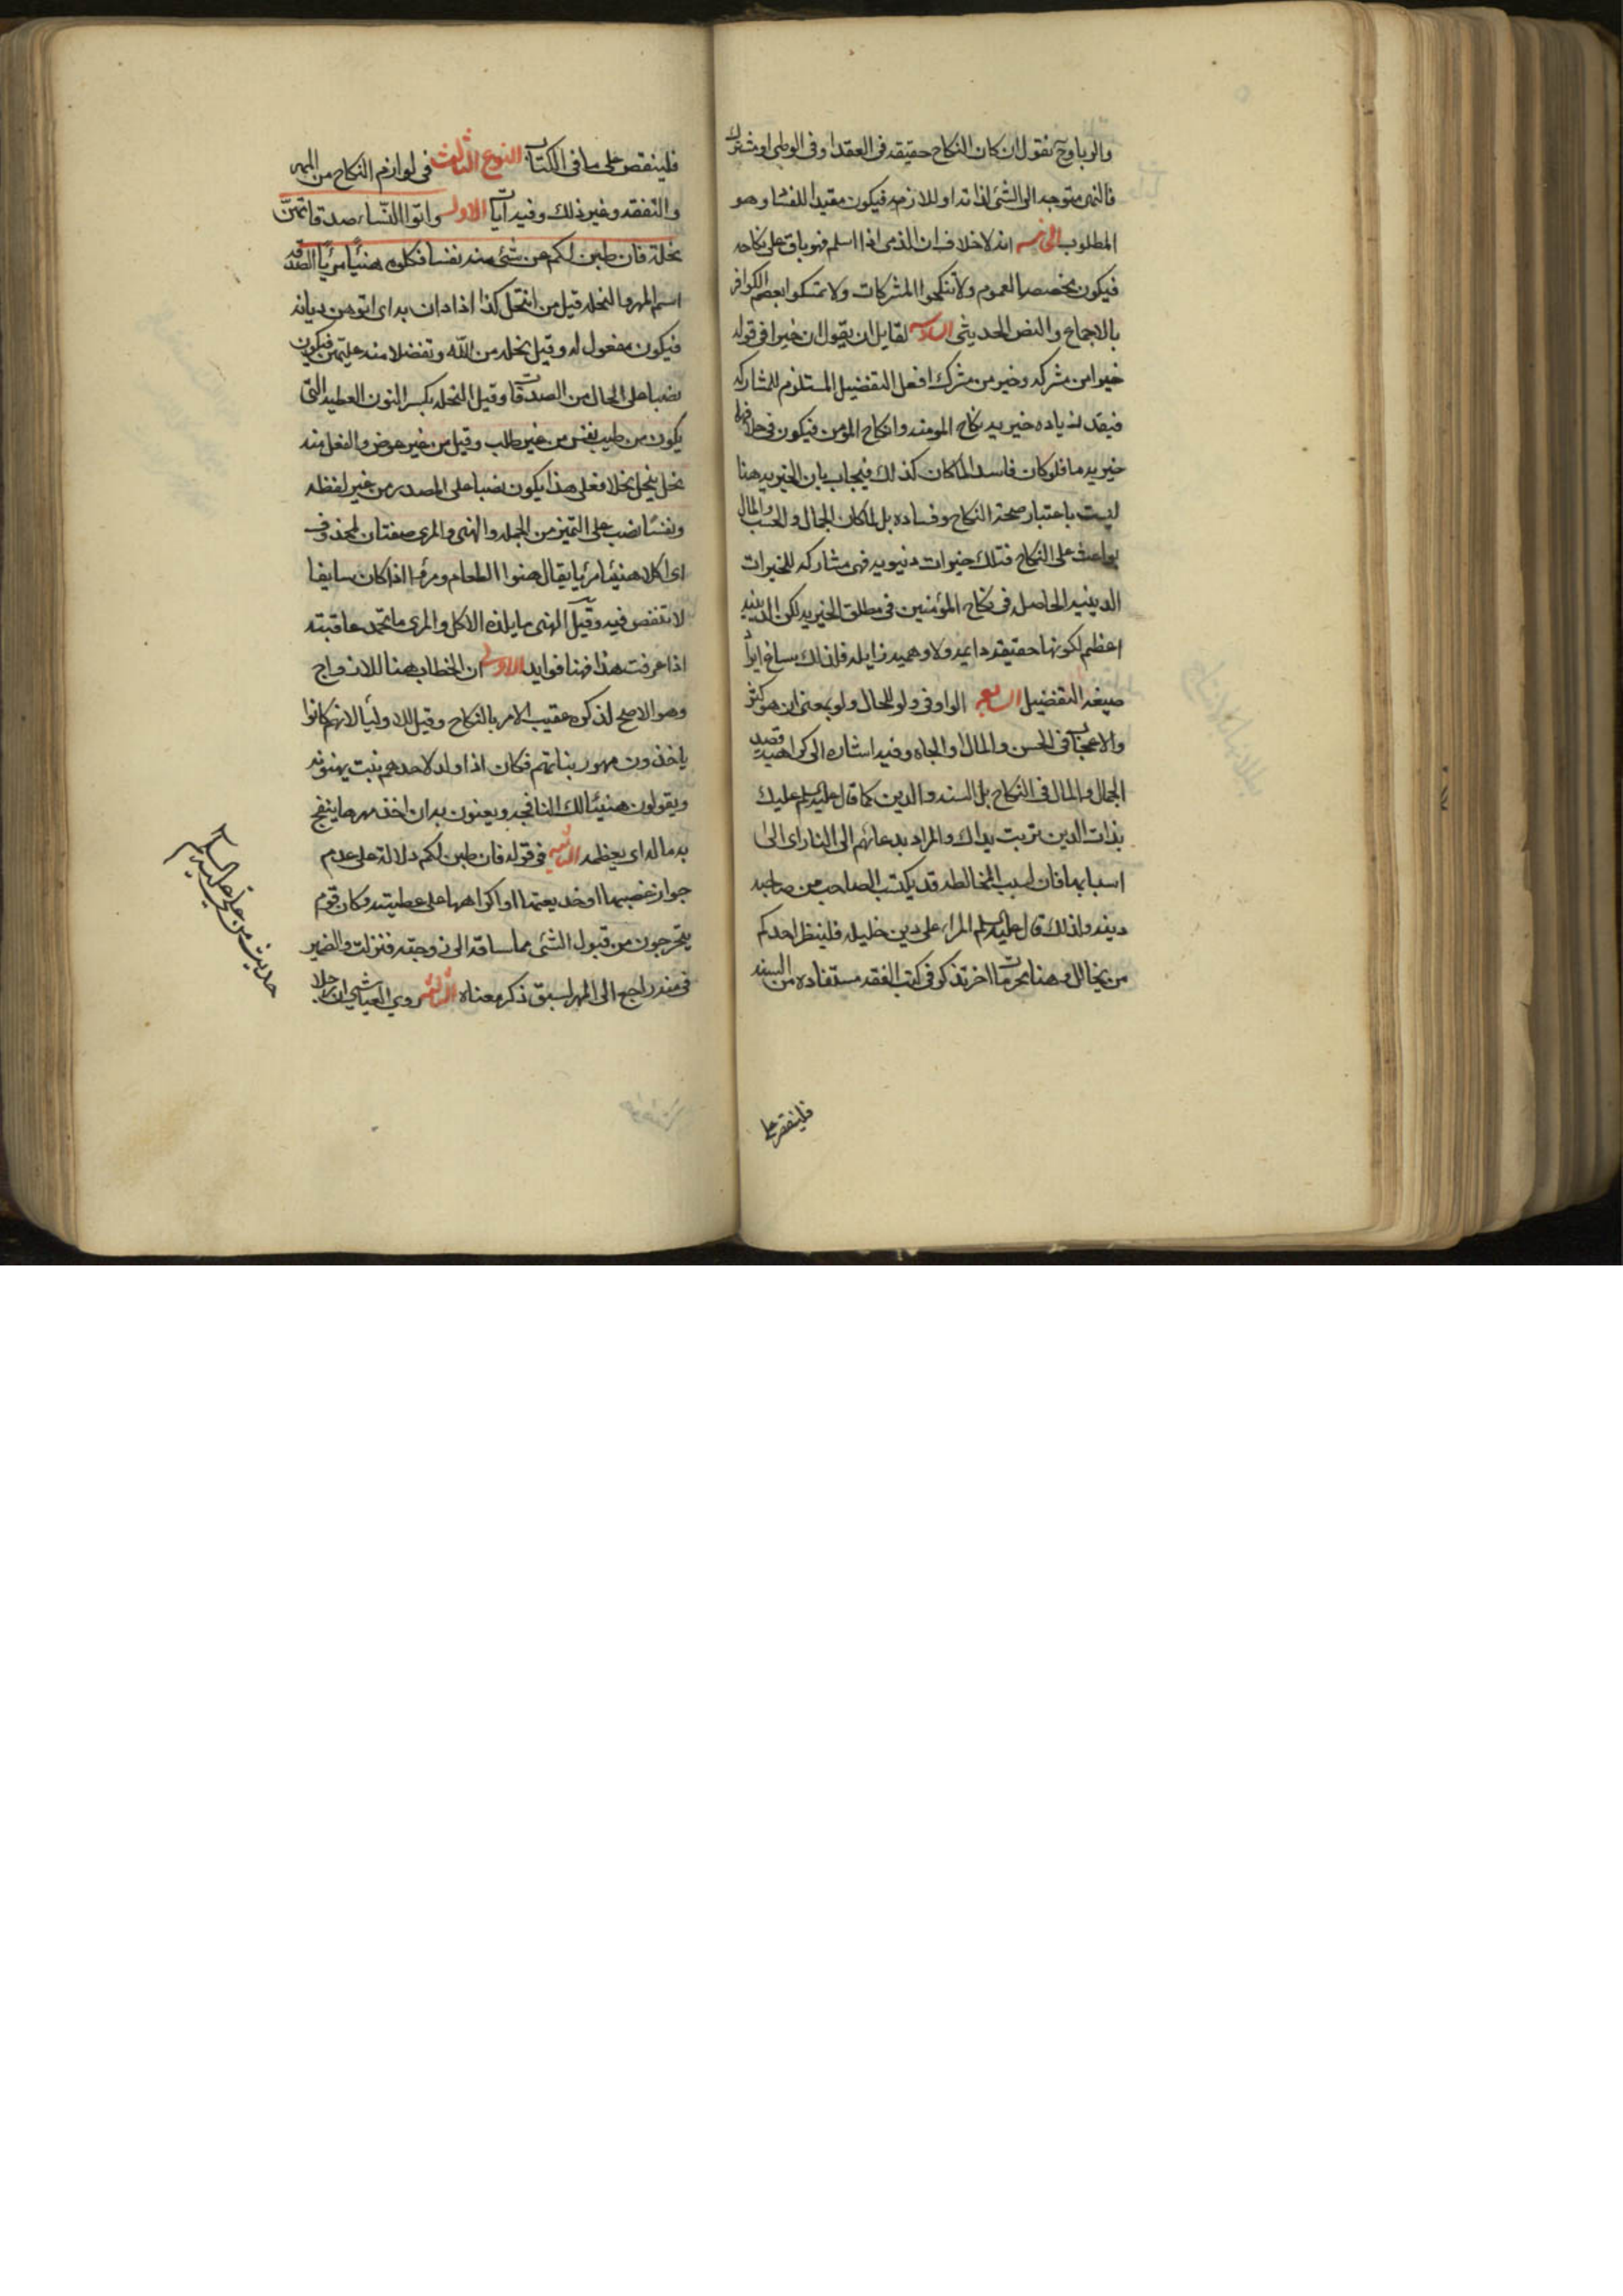 والربا وح نقول ان كان النكاح حقيقه فى العقد او فى الوطى او مشترك
فالنهى متوجه الى الشئ لذاته او للازمه فيكون مقيدا للفساد وهو
المطلوب الخامسه انه لا خلاف ان الذمى اذا اسلم فهو باق على نكاحه
فيكون مخصصا لعموم ولا تنكحوا المشركات ولا تمسكوا بعصم الكوافر
بالاجماع والنص الحديثى السادسه لقايل ان يقول ان خيرا فى قوله
خير من مشركه وخير من مشرك افعل التفضيل المستلزم للمشاركه
فيفيد زياده خيريه نكاح المومنه وانكاح المؤمن فيكون فى خلافهما
خيريه ما فلو كان فاسدا لما كان كذلك فيجاب بان الخيريه هنا
ليست باعتبار صحة النكاح وفساده بل لما كان الجمال والحسب والمال
بواعث على النكاح فتلك خيرات دنيويه فهى مشاركه للخيرات
الدينيه الحاصله فى نكاح المؤمنين فى مطلق الخيريه لكن الدينيه
اعظم لكونها حقيقه دائمه ولا وهميه زايله فلذلك ساغ ايراد
صيغه التفضيل السابعه الواو فى ولو للحال ولو بمعنى ان وهو كثير
والاعجاب فى الحسن والمال والجاه وفيه اشاره الى كراهيه قصد
الجمال والمال فى النكاح بل السنه والدين كما قال عليه السلم عليك
بذات الدين تربت يداك والمراد بدعائهم الى النار اى الى
اسبابها فان لسبب المخالطه قد يكتسب الصاحب من صاحبه
دينه ولذلك قال عليه السلم المراء على دين خليله فلينظر احدكم
من يخالل وهنا محرمات اخر تذكر فى كتب الفقه مستفاده من السنه
فلينقص على
فلينقص على ما فى الكتاب النوع الثالث فى لوازم النكاح من المهر
والنفقه وغير ذلك وفيه ايات الاولى واتوا النساء صدقاتهن
نحلة فان طبن لكم عن شئ منه نفسا فكلوه هنيئا مريئا الصدقه
اسم المهر والنحله قيل من انتحل كذا اذا دان به اى اتوهن ديانه
فيكون مفعول له وقيل نحله من الله وتفضلا منه عليهن فيكون
نصبا على الحال من الصدقات وقيل النحله بكسر النون العطيه التى
يكون من طيب نفس من غير طلب وقيل من غير عوض والفعل منه
نحل ينحل نحلا فعلى هذا يكون نصبا على المصدر من غير لفظه
ونفسا نصب على التميز من الجمله والهنى والمرى صفتان لمحذوف
اى اكلا هنيئا مريئا يقال هنوا الطعام ومرؤا اذا كان سايغا
لا تنغص فيه وقيل الهنى ما يلذه الاكل والمرى ما تحمد عاقبته
اذا عرفت هذا فهنا فوايد الاولى ان الخطاب هنا للازواج
وهو الاصح لذكره عقيب الامر بالنكاح وقيل للاولياء لانهم كانوا
ياخذون مهور بناتهم فكان اذا ولد لاحدهم بنت يهنونه
ويقولون هنيئا لك النافجه ويعنون به ان اخذ مهرها ينفج
به ماله اى يعظمه الثانيه فى قوله فان طبن لكم دلالة على عدم
جواز غصبها او خديعتها او اكراهها على عطيته وكان قوم
يتحرجون من قبول الشئ مما ساقه الى زوجته فنزلت والضمير
فى منه راجع الى المهر لسبق ذكر معناه الثالثه روى العياشى ان رجلا
حديث من على عليه السلم